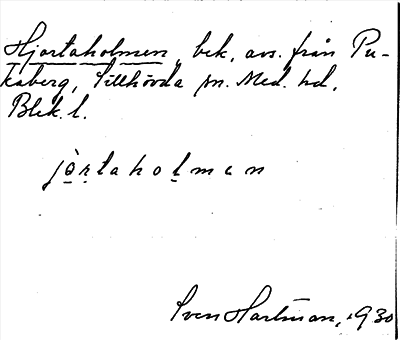 Hjortaholmen, bek. avs. från Pu-
kaberg, Tillhövda sn. Med. hd,
Blek. l.
jò̱ṟtaholmen
Sven Hartman, 1930